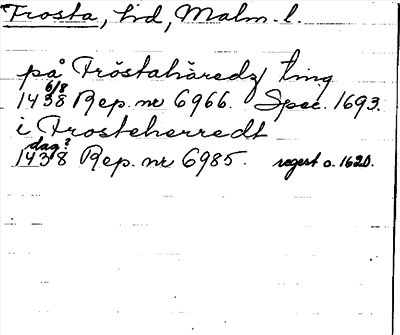 Frosta, hd, Malm. l.
på Fröstahäredz ting
6/8
1438 Rep. nr 6966. Spec. 1693.
i Frosteherredt
dag?
1438 Rep. nr 6985. regest o. 1620.